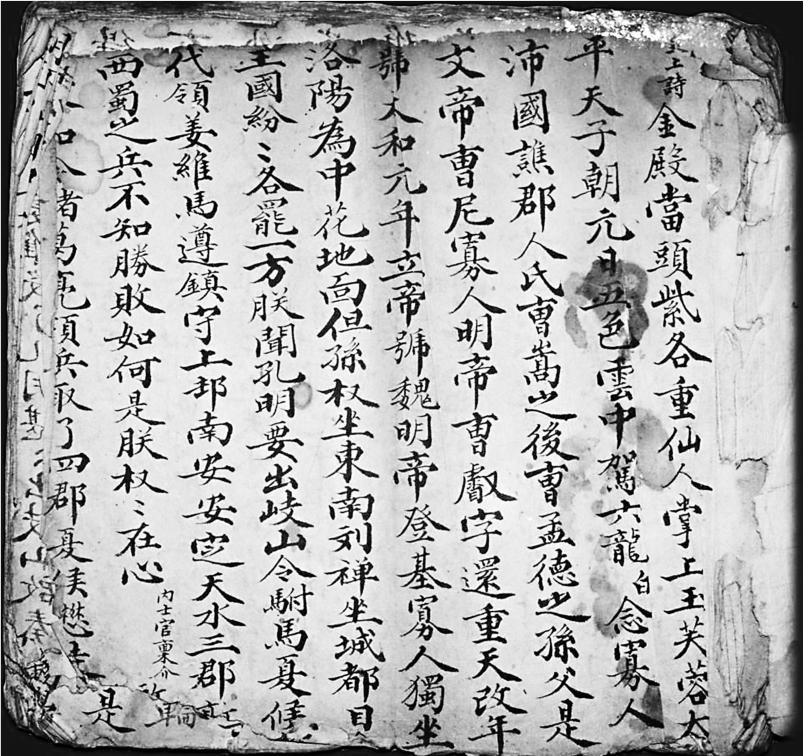 上詩金殿當頭紫各重仙人掌上玉芙蓉太
平天子朝元日五色雲中駕六龍白念寡人
沛國譙郡人氏曹嵩之後曹孟德之孫父是
文帝曹尼寡人明帝曹叡字還重天改年
號太和元年立帝號魏明帝登基寡人獨坐
洛陽為中花地面但孫权坐東南刘禅坐城都目
王國紛〻各罷一方朕聞孔明要出岐山令駙馬夏候
代領姜維馬遵鎮守上邽南安安定天水三郡
西蜀之兵不知勝敗如何是朕权〻在心
内士官稟介
諸葛亮領兵取了四郡夏侯懋
是